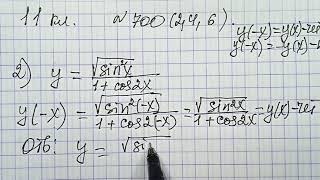 11 кл. № 700 (2,4,6).
y(-x) = y(x) - чет
y(-x) = -y(x) - н
2) y = √sin²x / 1 + cos2x
y(-x) = √sin²(-x) / 1 + cos2(-x) = √sin²x / 1 + cos2x = y(x) - чет
Отв: y = √si